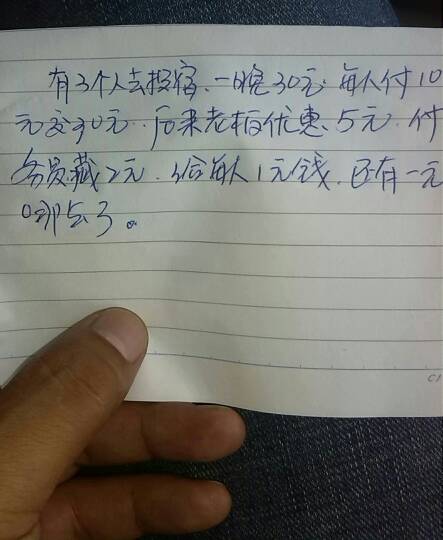 有3个人去投宿、一晚30元.每人付10
元交30元.后来老板优惠5元.付
务员藏2元.给每人1元钱.还有一元
哪去了。